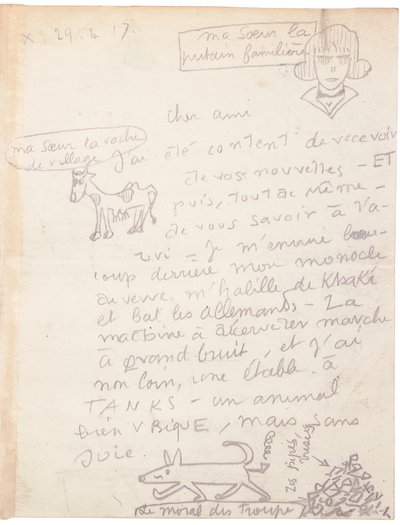 X. 29.4.17.
ma soeur la
putain familière
Cher ami
ma soeur la vache
de village
J'ai été content de recevoir
de vos nouvelles - ET
puis, tout de même -
de vous savoir à l'a-
bri - Je m'ennuie beau-
coup derrière mon monocle
de verre, m'habille de Khaki
et bat les allemands - La
machine à décerveler marche
à grand bruit, et j'ai
non loin, une étable à
TANKS - un animal
bien UBIQUE, mais sans
joie.
Le moral des Troupes